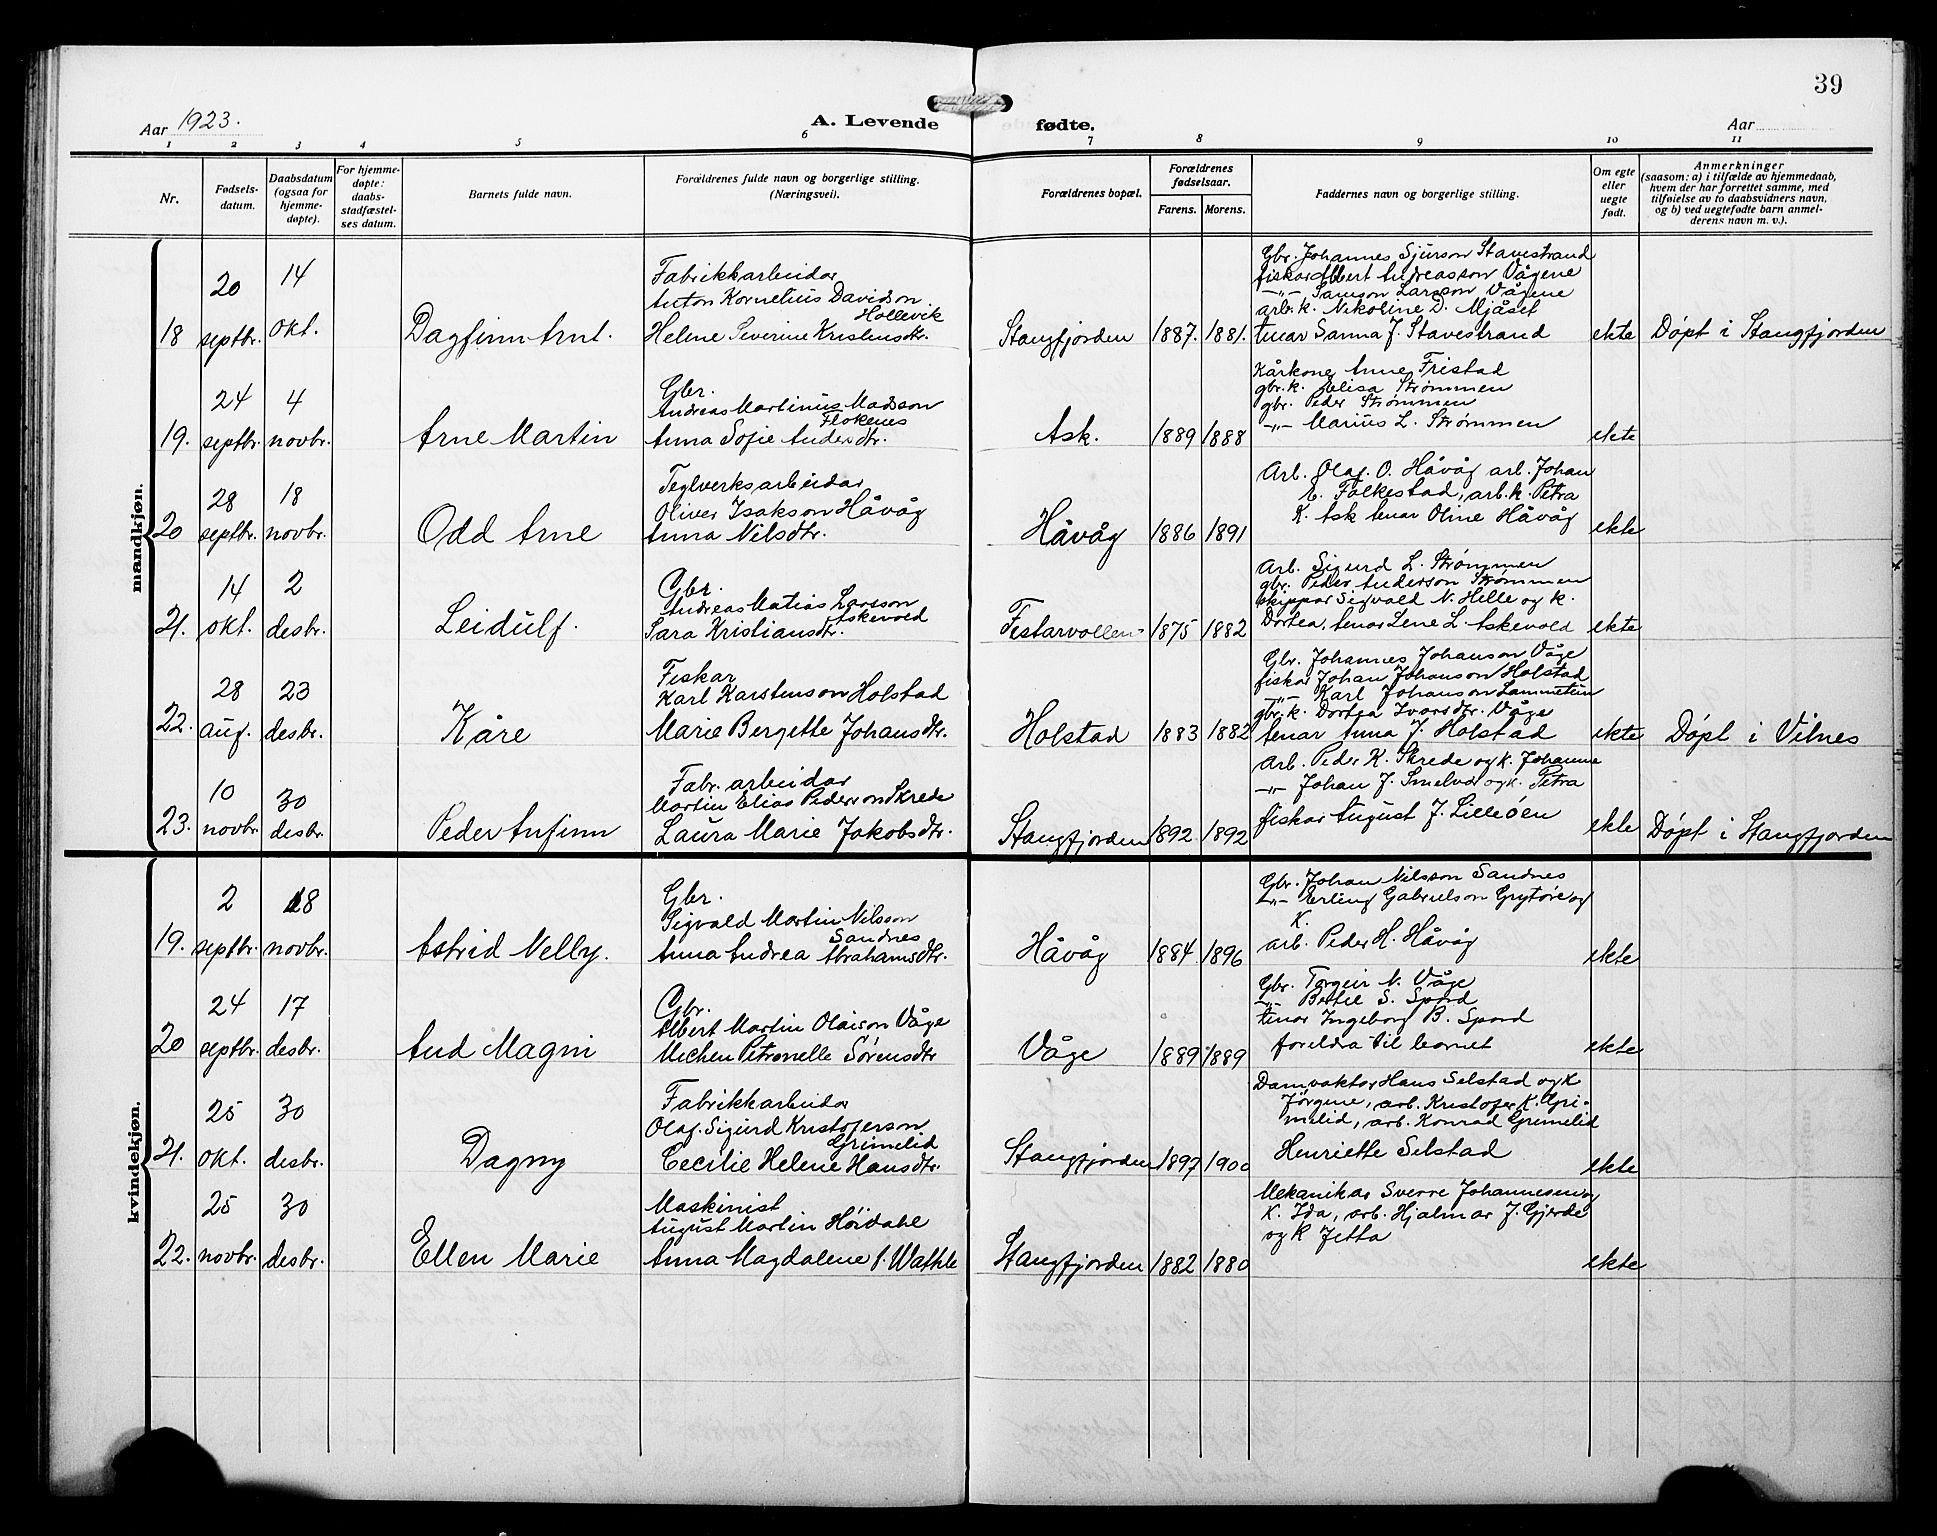 39
Aar 1923.
A. Levende
fødte.
Aar
1 2 3 4 5 6 7 8 9 10 11
Nr.
Fødsels-
datum.
Daabsdatum
(ogsaa for
hjemme-
døpte).
For hjemme-
døpte:
daabs-
stadfæstel-
ses datum.
Barnets fulde navn.
Forældrenes fulde navn og borgerlige stilling.
(Næringsvei).
Forældrenes bopæl.
Forældrenes
fødselsaar.
Farens. Morens.
Faddernes navn og borgerlige stilling.
Om egte
eller
uegte
født.
Anmerkninger
(saasom: a) i tilfælde av hjemmedaab,
hvem der har forrettet samme, med
tilføielse av to daabsvidners navn,
og b) ved uegtefødte barn anmel-
derens navn m. v.).
mandkjøn.
18
20
septbr.
14
okt.
Dagfinn Arnt.
Fabrikkarbeidar
Anton Kornelius Davidson
Hollevik
Helene Severine Kristensdtr.
Stangfjorden
1887. 1881.
Gbr. Johannes Sjurson Stavestrand
fiskar Albert Andreasson Vågene
-"- Samson Larsson Vågene
arb. k. Nikoline D. Mjåset
tenar Sanna J. Stavestrand
ekte
Døpt i Stangfjorden
19.
24
septbr.
4
novbr.
Arne Martin
Gbr.
Andreas Martinus Madson
Flokenes
Anna Sofie Andersdtr.
Ask.
1889 1888
Kårkone Anne Fristad
gbr. k. Elisa Strømmen
gbr. Peder Strømmen
-"- Marius L. Strømmen
ekte
20
28
septbr.
18
novbr.
Odd Arne
Teglverksarbeidar
Oliver Isakson Håvåg
Anna Nilsdtr.
Håvåg
1886 1891
Arb. Olaf O. Håvåg arb. Johan
Folkestad, arb. k. Petra
K. Ask tenar Oline Håvåg
ekte
21.
14
okt.
2
desbr.
Leidulf.
Gbr.
Andreas Matias Larsson
Askevold
Sara Kristiansdtr.
Festarvollen
1875 1882
Arb. Sigurd L. Strømmen
gbr. Peder Anderson Strømmen
skippar Sigvald N. Helle og k.
Dortea, tenar Lene L. Askevold
ekte
22.
28
aug.
23
desbr.
Kåre
Fiskar
Karl Karstenson Holstad
Marie Bergette Johansdtr.
Holstad
1883 1882
Gbr. Johannes Johanson Våge
fiskar Johan Johanson Holstad
-"- Karl Johanson Lammetun
gbr. k. Dortea Ivarsdtr. Våge
tenar Anna J. Holstad
ekte
Døpt i Vilnes
23.
10
novbr
30
desbr.
Peder Anfinn
Fabr. arbeidar
Martin Elias Pederson Skrede
Laura Marie Jakobsdtr.
Stangfjorden
1892 1892
Arb. Peder K. Skrede og k. Johanne
-"- Johan J. Smelvd og k. Petra
fiskar August J. Lilleøen
ekte
Døpt i Stangfjorden
kvindekjøn.
19.
2
septbr.
18
novbr.
Astrid Nelly.
Gbr.
Sigvald Martin Nilsson
Sandnes
Anna Andrea Abrahamsdtr.
Håvåg
1884 1896
Gbr. Johan Nilsson Sandnes
-"- Erling Gabrielson Grytøre og
K.
arb. Peder H. Håvåg
ekte
20
24
septbr.
17
desbr.
Aud Magni
Gbr.
Albert Martin Olaison Våge
Michen Petronelle Sørensdtr
Våge
1889 1889
Gbr. Torgeir N. Våge
-"- Bertel S. Spord
tenar Ingeborg B. Spord
foreldra til barnet
ekte
21.
25
okt.
30
desbr.
Dagny
Fabrikkarbeidar
Olaf Sigurd Kristoferson
Grimelid
Cecilie Helene Hansdtr.
Stangfjorden
1897 1900
Damvaktar Hans Selstad og k
Jørgine, arb. Kristofer K. Gri-
melid, arb. Konrad Grimelid
Henriette Selstad
ekte
22.
25
novbr.
30
desbr.
Ellen Marie
Maskinist
August Martin Høidahl
Anna Magdalene f. Wathle
Stangfjorden
1882 1880
Mekanikar Sverre Johannesen og
K. Ida, arb. Hjalmar J. Gjerde
og k Jetta
ekte